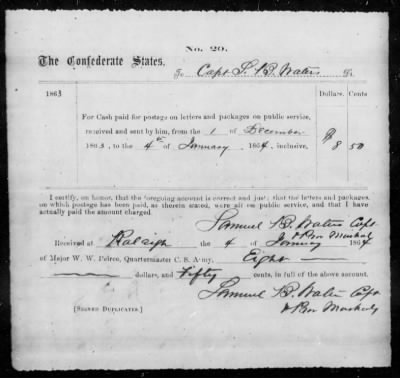 No. 20.
The Confederate States,
To Capt S. B. Waters Dr.
1863
Dollars. Cents
For Cash paid for postage on letters and packages on public service,
received and sent by him, from the 1 of December
1863, to the 4th of January 1864, inclusive,
$ 8 50
I certify, on honor, that the foregoing account is correct and just; that the letters and packages
on which postage has been paid, as therein stated, were all on public service, and that I have
actually paid the amount charged.
Samuel B. Waters Capt
& Pro Marshal
Received at Raleigh the 4 of January 1864
of Major W. W. Peirce, Quartermaster C. S. Army, Eight
dollars, and Fifty cents, in full of the above account.
Samuel B. Waters Capt
& Pro Marshal
[SIGNED DUPLICATES.]